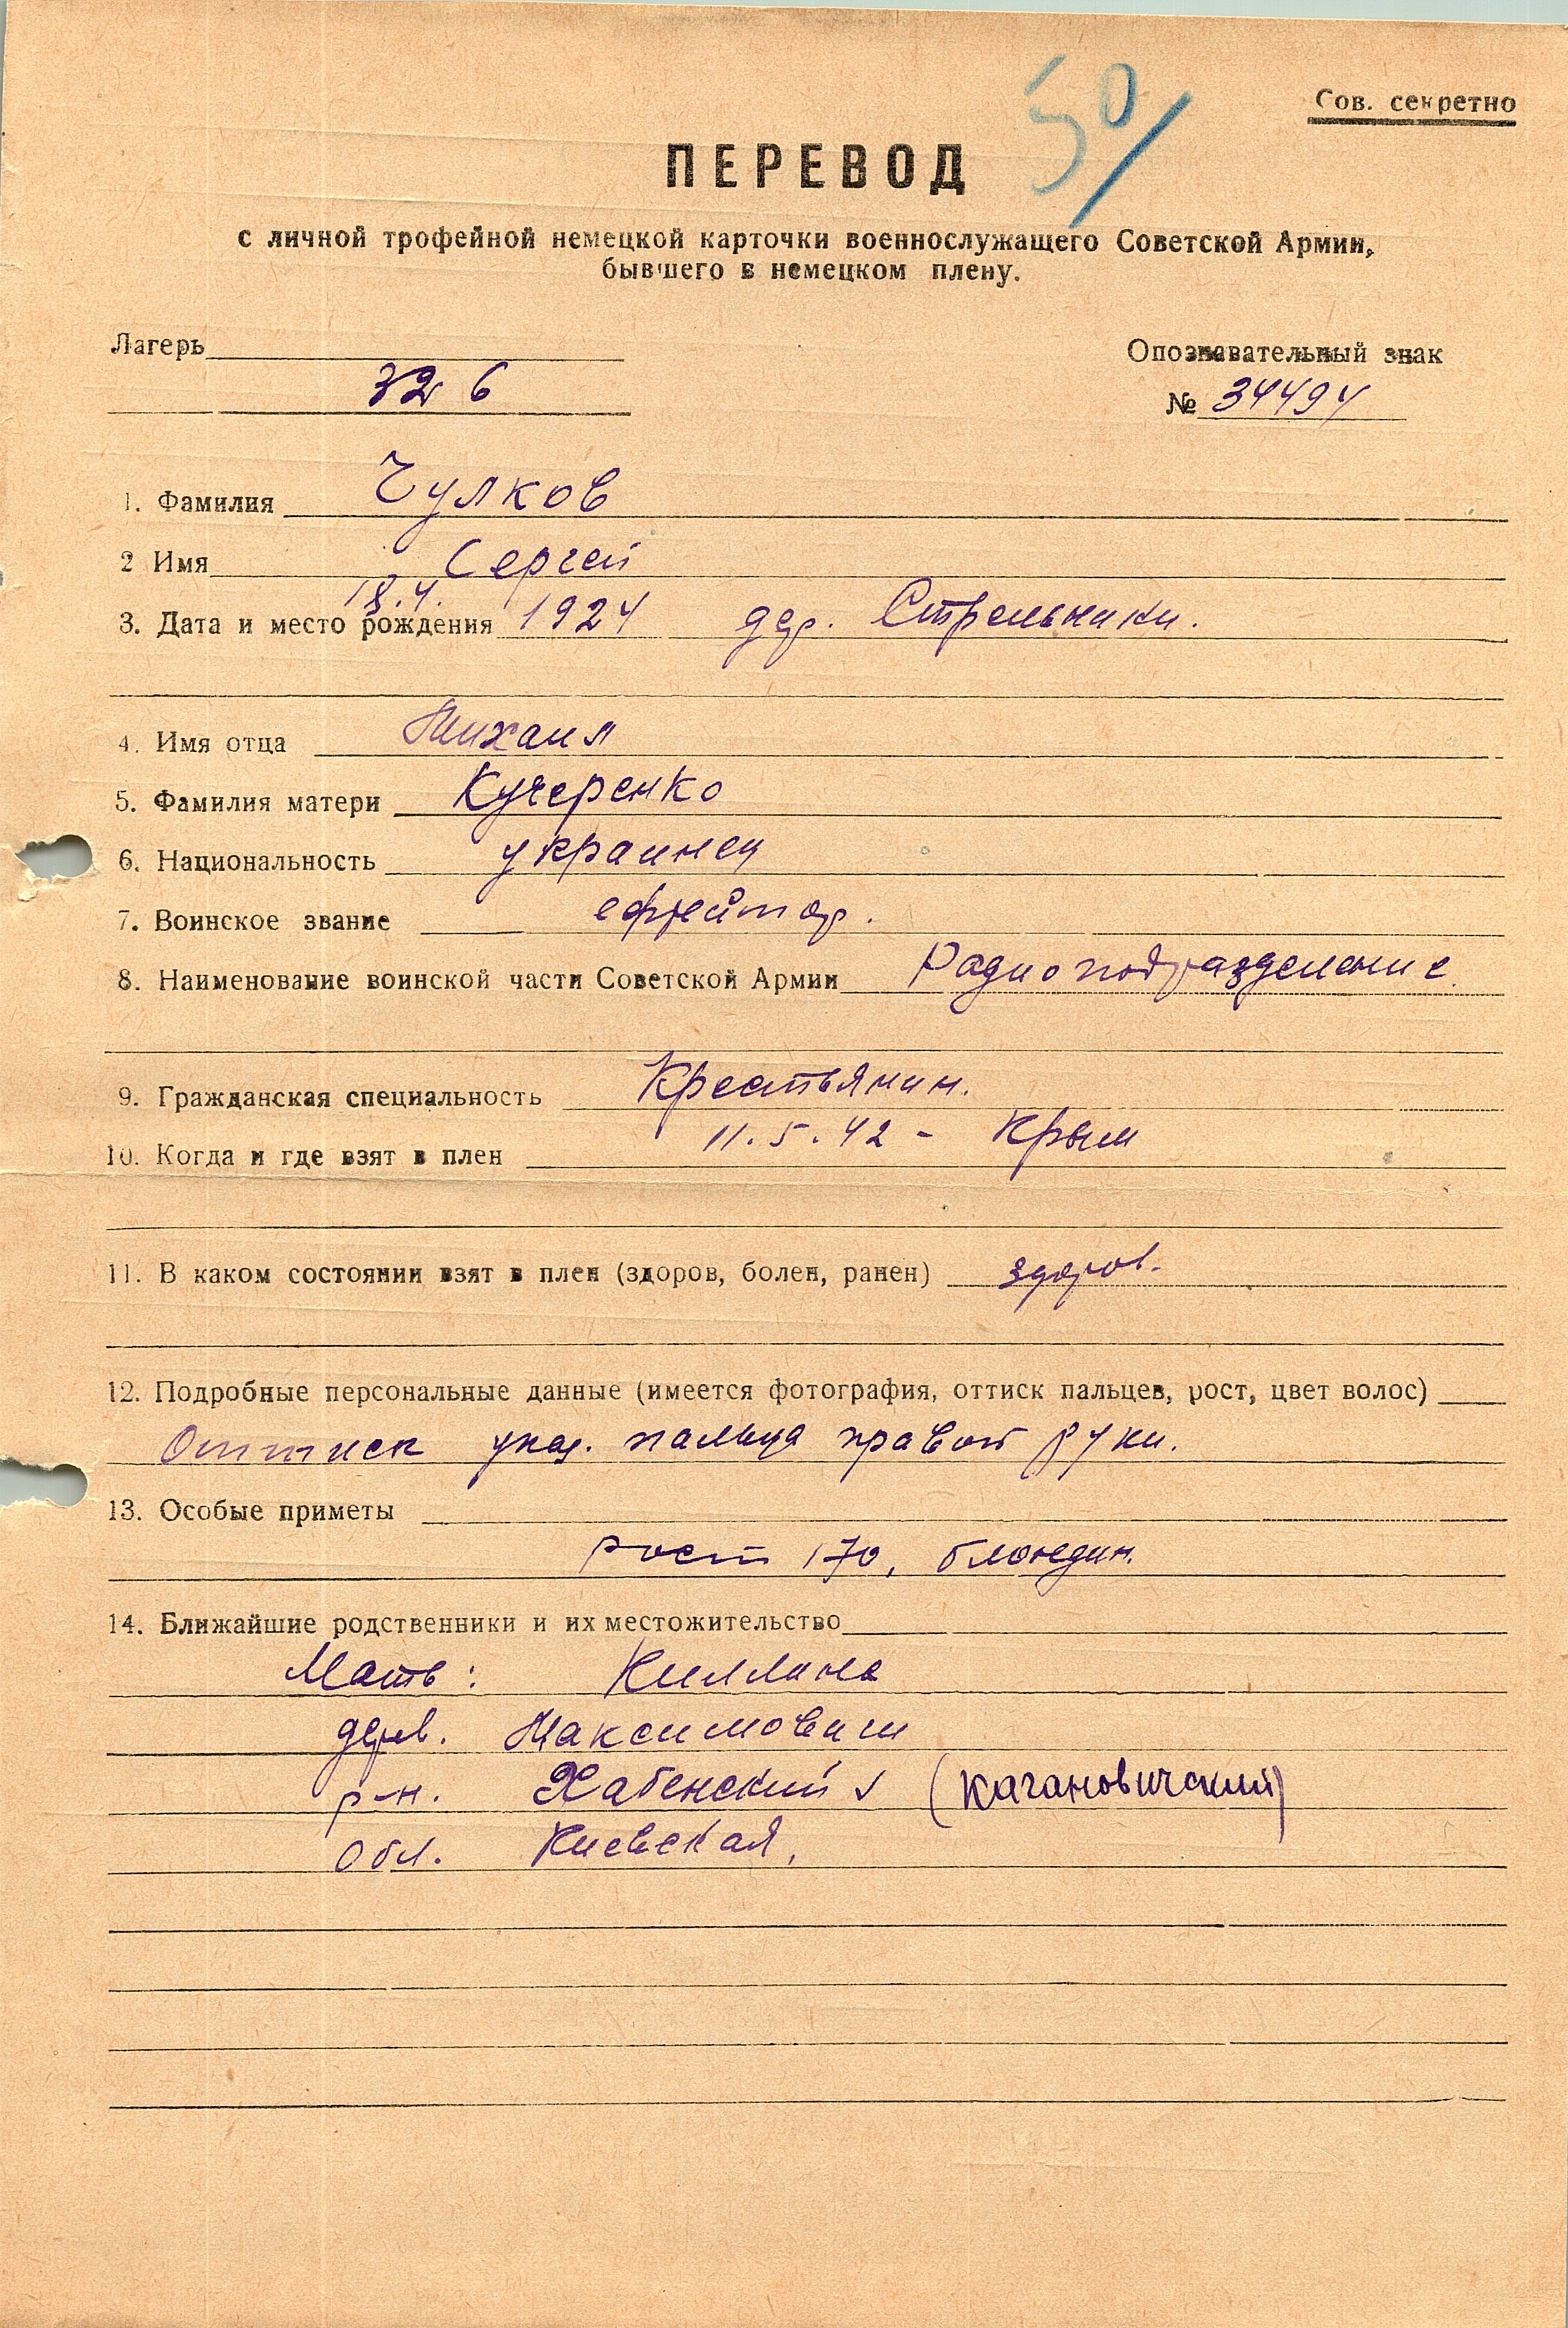 50/
Сов. секретно
ПЕРЕВОД
с личной трофейной немецкой карточки военнослужащего Советской Армии,
бывшего в немецком плену.
Лагерь
326
Опознавательный знак
№ 34494
1. Фамилия Чулков
2 Имя Сергей
18.4.
3. Дата и место рождения 1924 дер. Стрельники.
4. Имя отца Михаил
5. Фамилия матери Кучеренко
6. Национальность украинец
7. Воинское звание ефрейтор.
8. Наименование воинской части Советской Армии Радиоподразделение.
9. Гражданская специальность Крестьянин.
10. Когда и где взят в плен 11.5.42 - Крым
11. В каком состоянии взят в плен (здоров, болен, ранен) здоров.
12. Подробные персональные данные (имеется фотография, оттиск пальцев, рост, цвет волос)
Оттиск указ. пальца правой руки.
13. Особые приметы
рост 170, блондин.
14. Ближайшие родственники и их местожительство
Мать: Киллина
дерев. Максимович
р-н. Хабенский √ (Кагановичский)
Обл. Киевская,